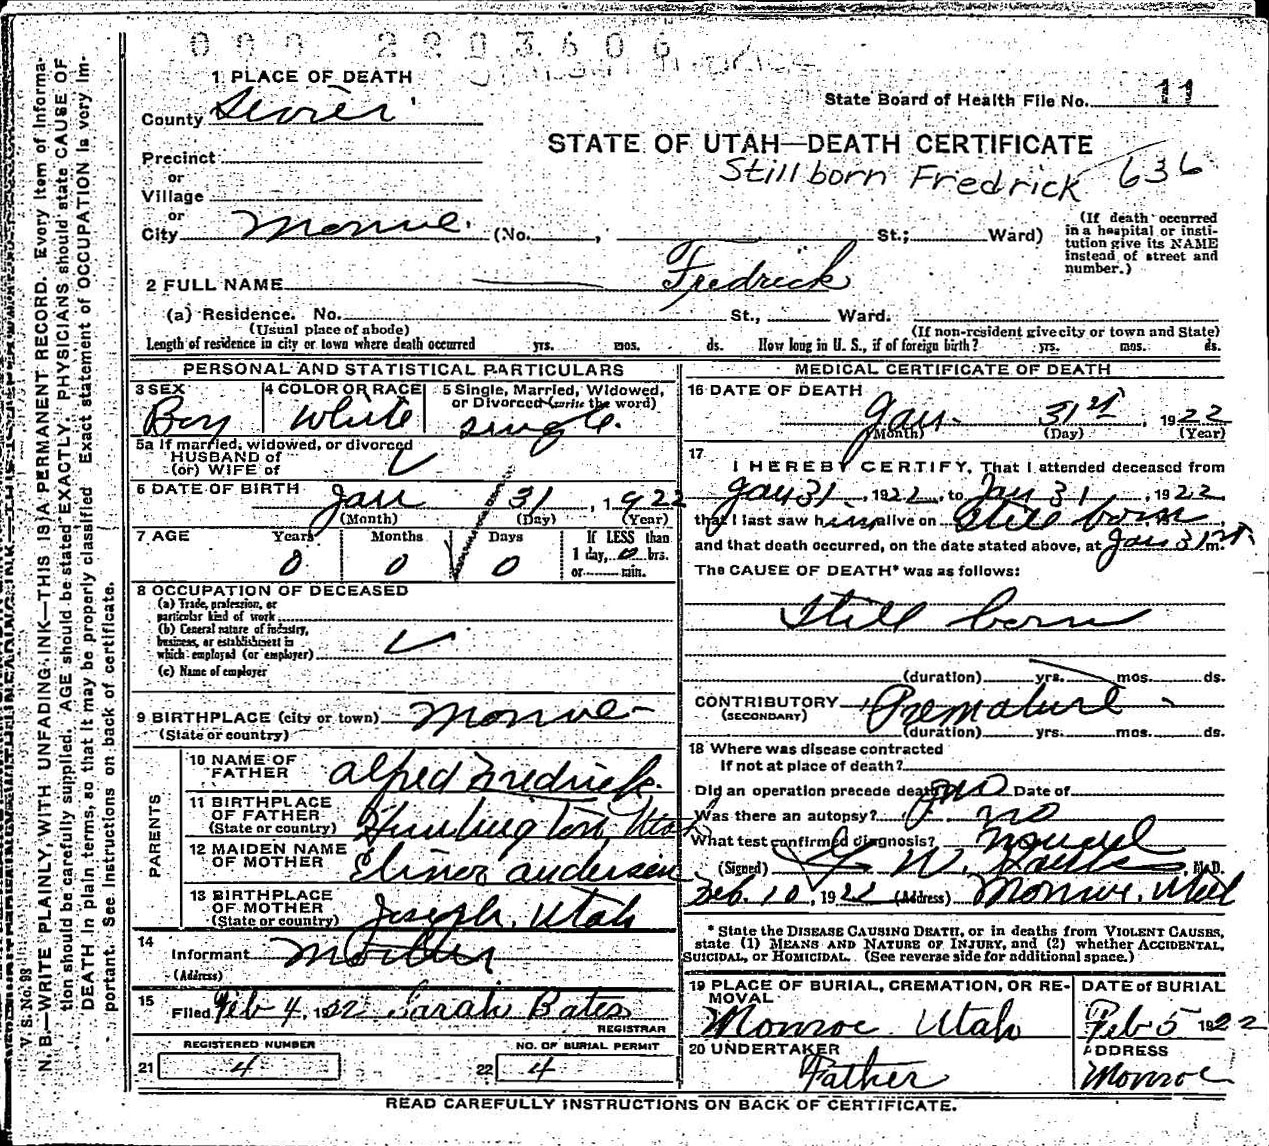 000 2203606
1 PLACE OF DEATH
County Sevier
State Board of Health File No. 11
STATE OF UTAH—DEATH CERTIFICATE
Stillborn Fredrick 636
Precinct
or
Village
or
City Monroe. (No. , St.; Ward)
(If death occurred
in a hospital or insti-
tution give its NAME
instead of street and
number.)
2 FULL NAME Fredrick
(a) Residence. No. St., Ward.
(Usual place of abode) (If non-resident give city or town and State)
Length of residence in city or town where death occurred yrs. mos. ds. How long in U. S., if of foreign birth? yrs. mos. ds.
PERSONAL AND STATISTICAL PARTICULARS
3 SEX 4 COLOR OR RACE 5 Single, Married, Widowed,
or Divorced (write the word)
Boy White single.
5a If married, widowed, or divorced
HUSBAND of
(or) WIFE of
6 DATE OF BIRTH Jan 31, 1922
(Month) (Day) (Year)
7 AGE Years Months Days If LESS than
1 day, 0 hrs.
0 0 0 or min.
8 OCCUPATION OF DECEASED
(a) Trade, profession, or
particular kind of work
(b) General nature of industry,
business, or establishment in
which employed (or employer)
(c) Name of employer
9 BIRTHPLACE (city or town) Monroe-
(State or country)
PARENTS
10 NAME OF
FATHER Alfred Fredrick.
11 BIRTHPLACE
OF FATHER
(State or country) Huntington, Utah
12 MAIDEN NAME
OF MOTHER Elinor Andersen
13 BIRTHPLACE
OF MOTHER
(State or country) Joseph, Utah
14
Informant Mother
(Address)
15
Filed Feb 4, 1922 Sarah Bates
REGISTRAR
REGISTERED NUMBER NO. OF BURIAL PERMIT
21 4 22 4
MEDICAL CERTIFICATE OF DEATH
16 DATE OF DEATH
Jan- 31st, 1922
(Month) (Day) (Year)
17
I HEREBY CERTIFY, That I attended deceased from
Jan 31, 1922, to Jan 31, 1922
that I last saw him alive on Still born,
and that death occurred, on the date stated above, at Jan 31st m.
The CAUSE OF DEATH* was as follows:
Still born
(duration) yrs. mos. ds.
CONTRIBUTORY Premature
(SECONDARY)
(duration) yrs. mos. ds.
18 Where was disease contracted
If not at place of death?
Did an operation precede death? no Date of
Was there an autopsy? no
What test confirmed diagnosis?
(Signed) W. M.D.
Feb. 10, 1922 (Address) Monroe, Utah
* State the DISEASE CAUSING DEATH, or in deaths from VIOLENT CAUSES,
state (1) MEANS AND NATURE OF INJURY, and (2) whether ACCIDENTAL,
SUICIDAL, or HOMICIDAL. (See reverse side for additional space.)
19 PLACE OF BURIAL, CREMATION, OR RE-
MOVAL
Monroe Utah
DATE of BURIAL
Feb 5 1922
20 UNDERTAKER
Father
ADDRESS
Monroe
READ CAREFULLY INSTRUCTIONS ON BACK OF CERTIFICATE.
V. S. No. 98
N. B.—WRITE PLAINLY, WITH UNFADING INK—THIS IS A PERMANENT RECORD. Every Item of Informa-
tion should be carefully supplied. AGE should be stated EXACTLY. PHYSICIANS should state CAUSE OF
DEATH in plain terms, so that it may be properly classified. Exact statement of OCCUPATION is very im-
portant. See instructions on back of certificate.